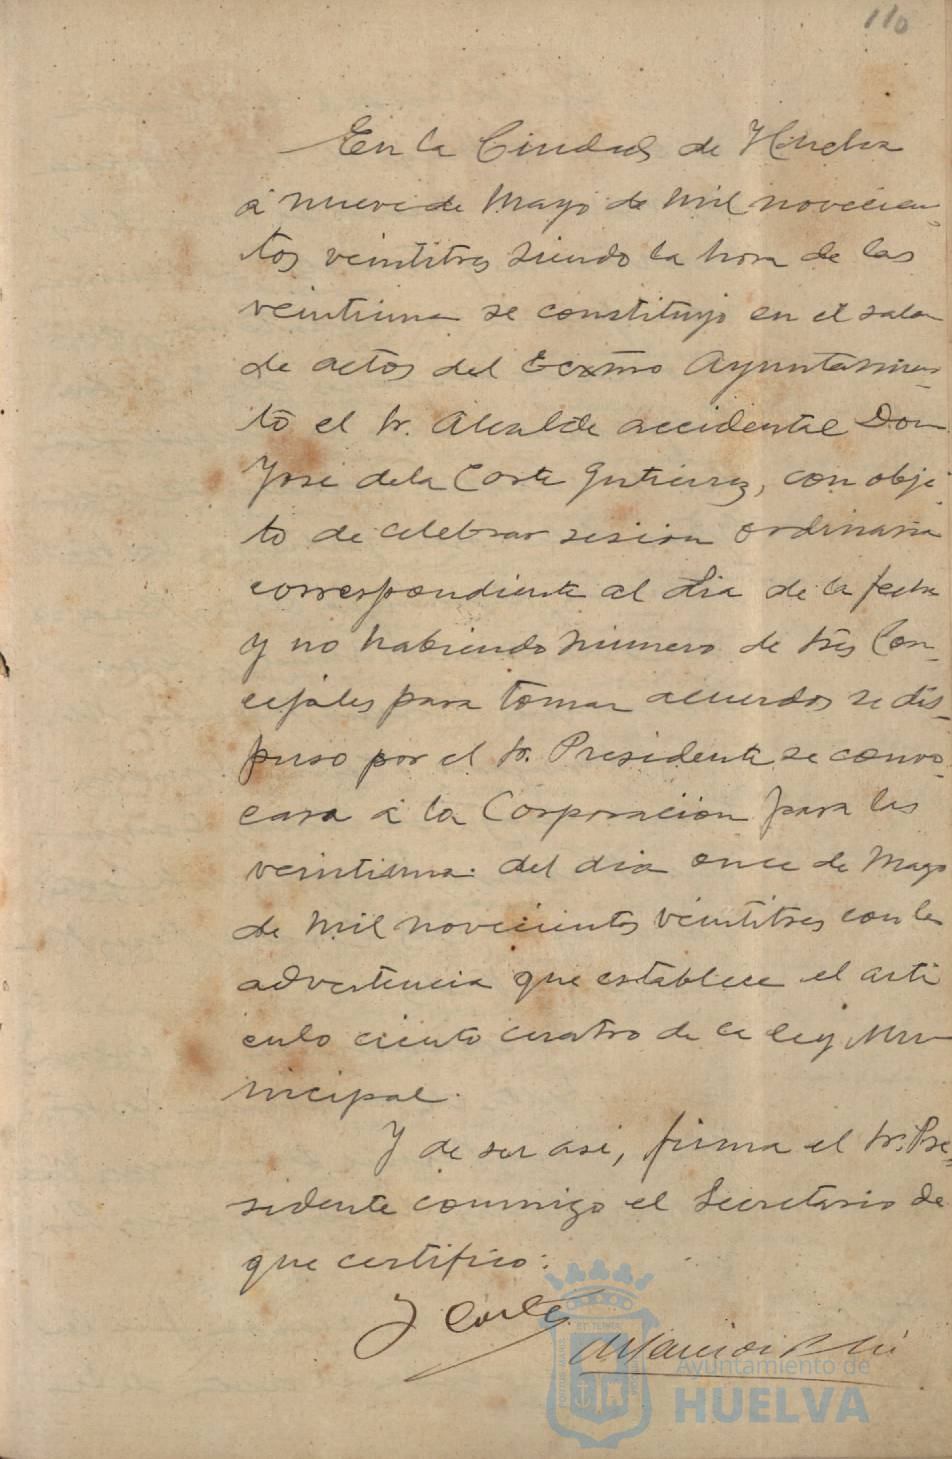 110
En la Ciudad de Huelva
á nueve de Mayo de mil novecien-
tos veintitres siendo la hora de las
veintiuna se constituyó en el salon
de actos del Excmo Ayuntamien-
to el Sr. Alcalde accidental Don
José de la Corte Gutierrez, con obje-
to de celebrar sesion ordinaria
correspondiente al dia de la fecha
y no habiendo número de tres Con-
cejales para tomar acuerdos se dis-
puso por el Sr. Presidente se convo-
cara á la Corporacion para las
veintiuna. del dia once de Mayo
de mil novecientos veintitres con la
advertencia que establece el arti
culo ciento cuatro de la ley Mu-
nicipal.
Y de ser asi, firma el Sr. Pre-
sidente conmigo el Secretario de
que certifico:
J Corte
Ayuntamiento de
HUELVA